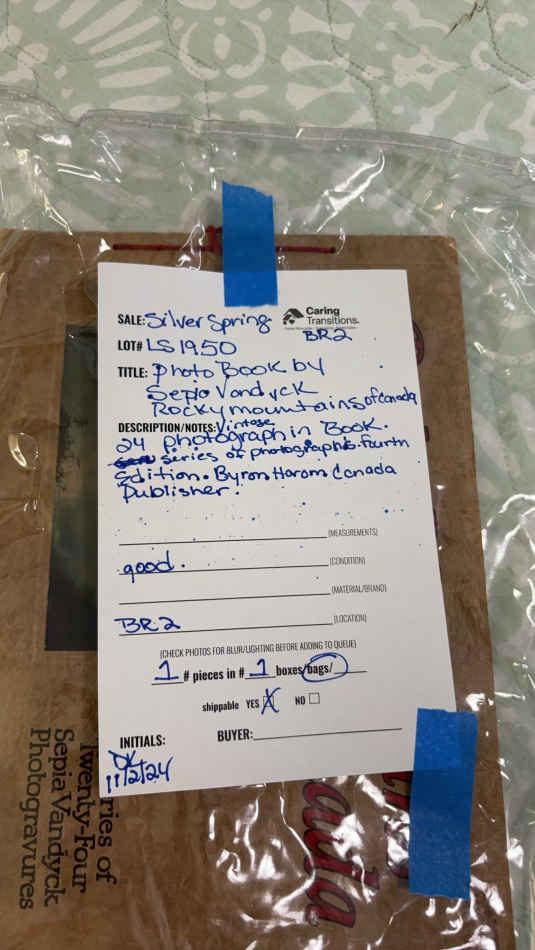 SALE: Silver Spring
Caring
Transitions.
BR2
LOT# LS1950
TITLE: Photo Book by
Sepia Vandyck
Rocky mountains of Canada
DESCRIPTION/NOTES: Vintage
24 photograph in Book.
series of photographs fourth
Edition. Byron Harom Canada
Publisher.
(MEASUREMENTS)
good. (CONDITION)
(MATERIAL/BRAND)
BR2 (LOCATION)
(CHECK PHOTOS FOR BLUR/LIGHTING BEFORE ADDING TO QUEUE)
1 # pieces in # 1 boxes/bags/
shippable YES X NO
INITIALS: BUYER:
11/2/24
ries of
Twenty-Four
Sepia Vandyck
Photogravures